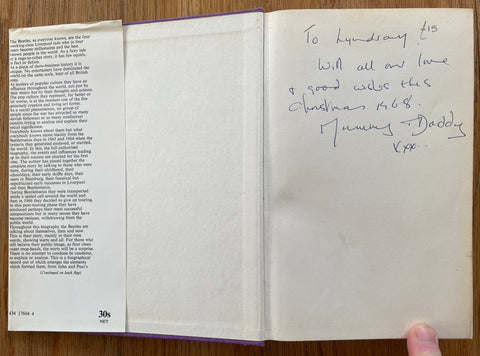 The Beatles, as everyone knows, are the four
working-class Liverpool lads who in four
years became millionaires and the best
known people in the world. As a fairy tale
or a rags-to-riches story, it has few equals,
in fact or fiction.
As a piece of show-business history it is
unique. No entertainers have dominated the
world on the same scale, least of all British
ones.
As leaders of popular culture they have an
influence throughout the world, not just by
their music but by their thoughts and actions.
The pop culture they represent, for better or
for worse, is at the moment one of the few
genuinely creative and living art forms.
As a social phenomenon, no group of
people since the war has attracted so many
devout followers or so many intellectual
pundits trying to analyse and explain their
social significance.
Everybody knows about them but what
everybody knows stems mainly from the
Beatlemania days in 1963 and 1964 when the
hysteria they generated enthused, or startled,
the world. In this, the full authorised
biography, the events and influences leading
up to their success are charted for the first
time. The author has pieced together the
complete story by talking to those who were
there, during their childhood, their
schooldays, their early skiffle days, their
years in Hamburg, their fanatical but
unpublicised early successes in Liverpool
and then Beatlemania.
During Beatlemania they were transported
inside a sealed cell around the world and
then in 1966 they decided to give up touring.
In this post-touring phase they have
produced perhaps their most successful
compositions but in many senses they have
become recluses, withdrawing from the
public world.
Throughout this biography the Beatles are
talking about themselves, then and now.
This is their story, mainly in their own
words, showing warts and all. For those who
still believe their public image, as four clean
sweet mop-heads, the warts will be a surprise.
There is no attempt to condone or condemn,
to explain or analyse. This is a biographical
record out of which emerges the elements
which formed them, from John and Paul's
(Continued on back flap)
434 17604 4
30s
NET
To Lyndsay £15
With all our love
& good wishes this
Christmas 1968.
Mummy & Daddy
xxx.